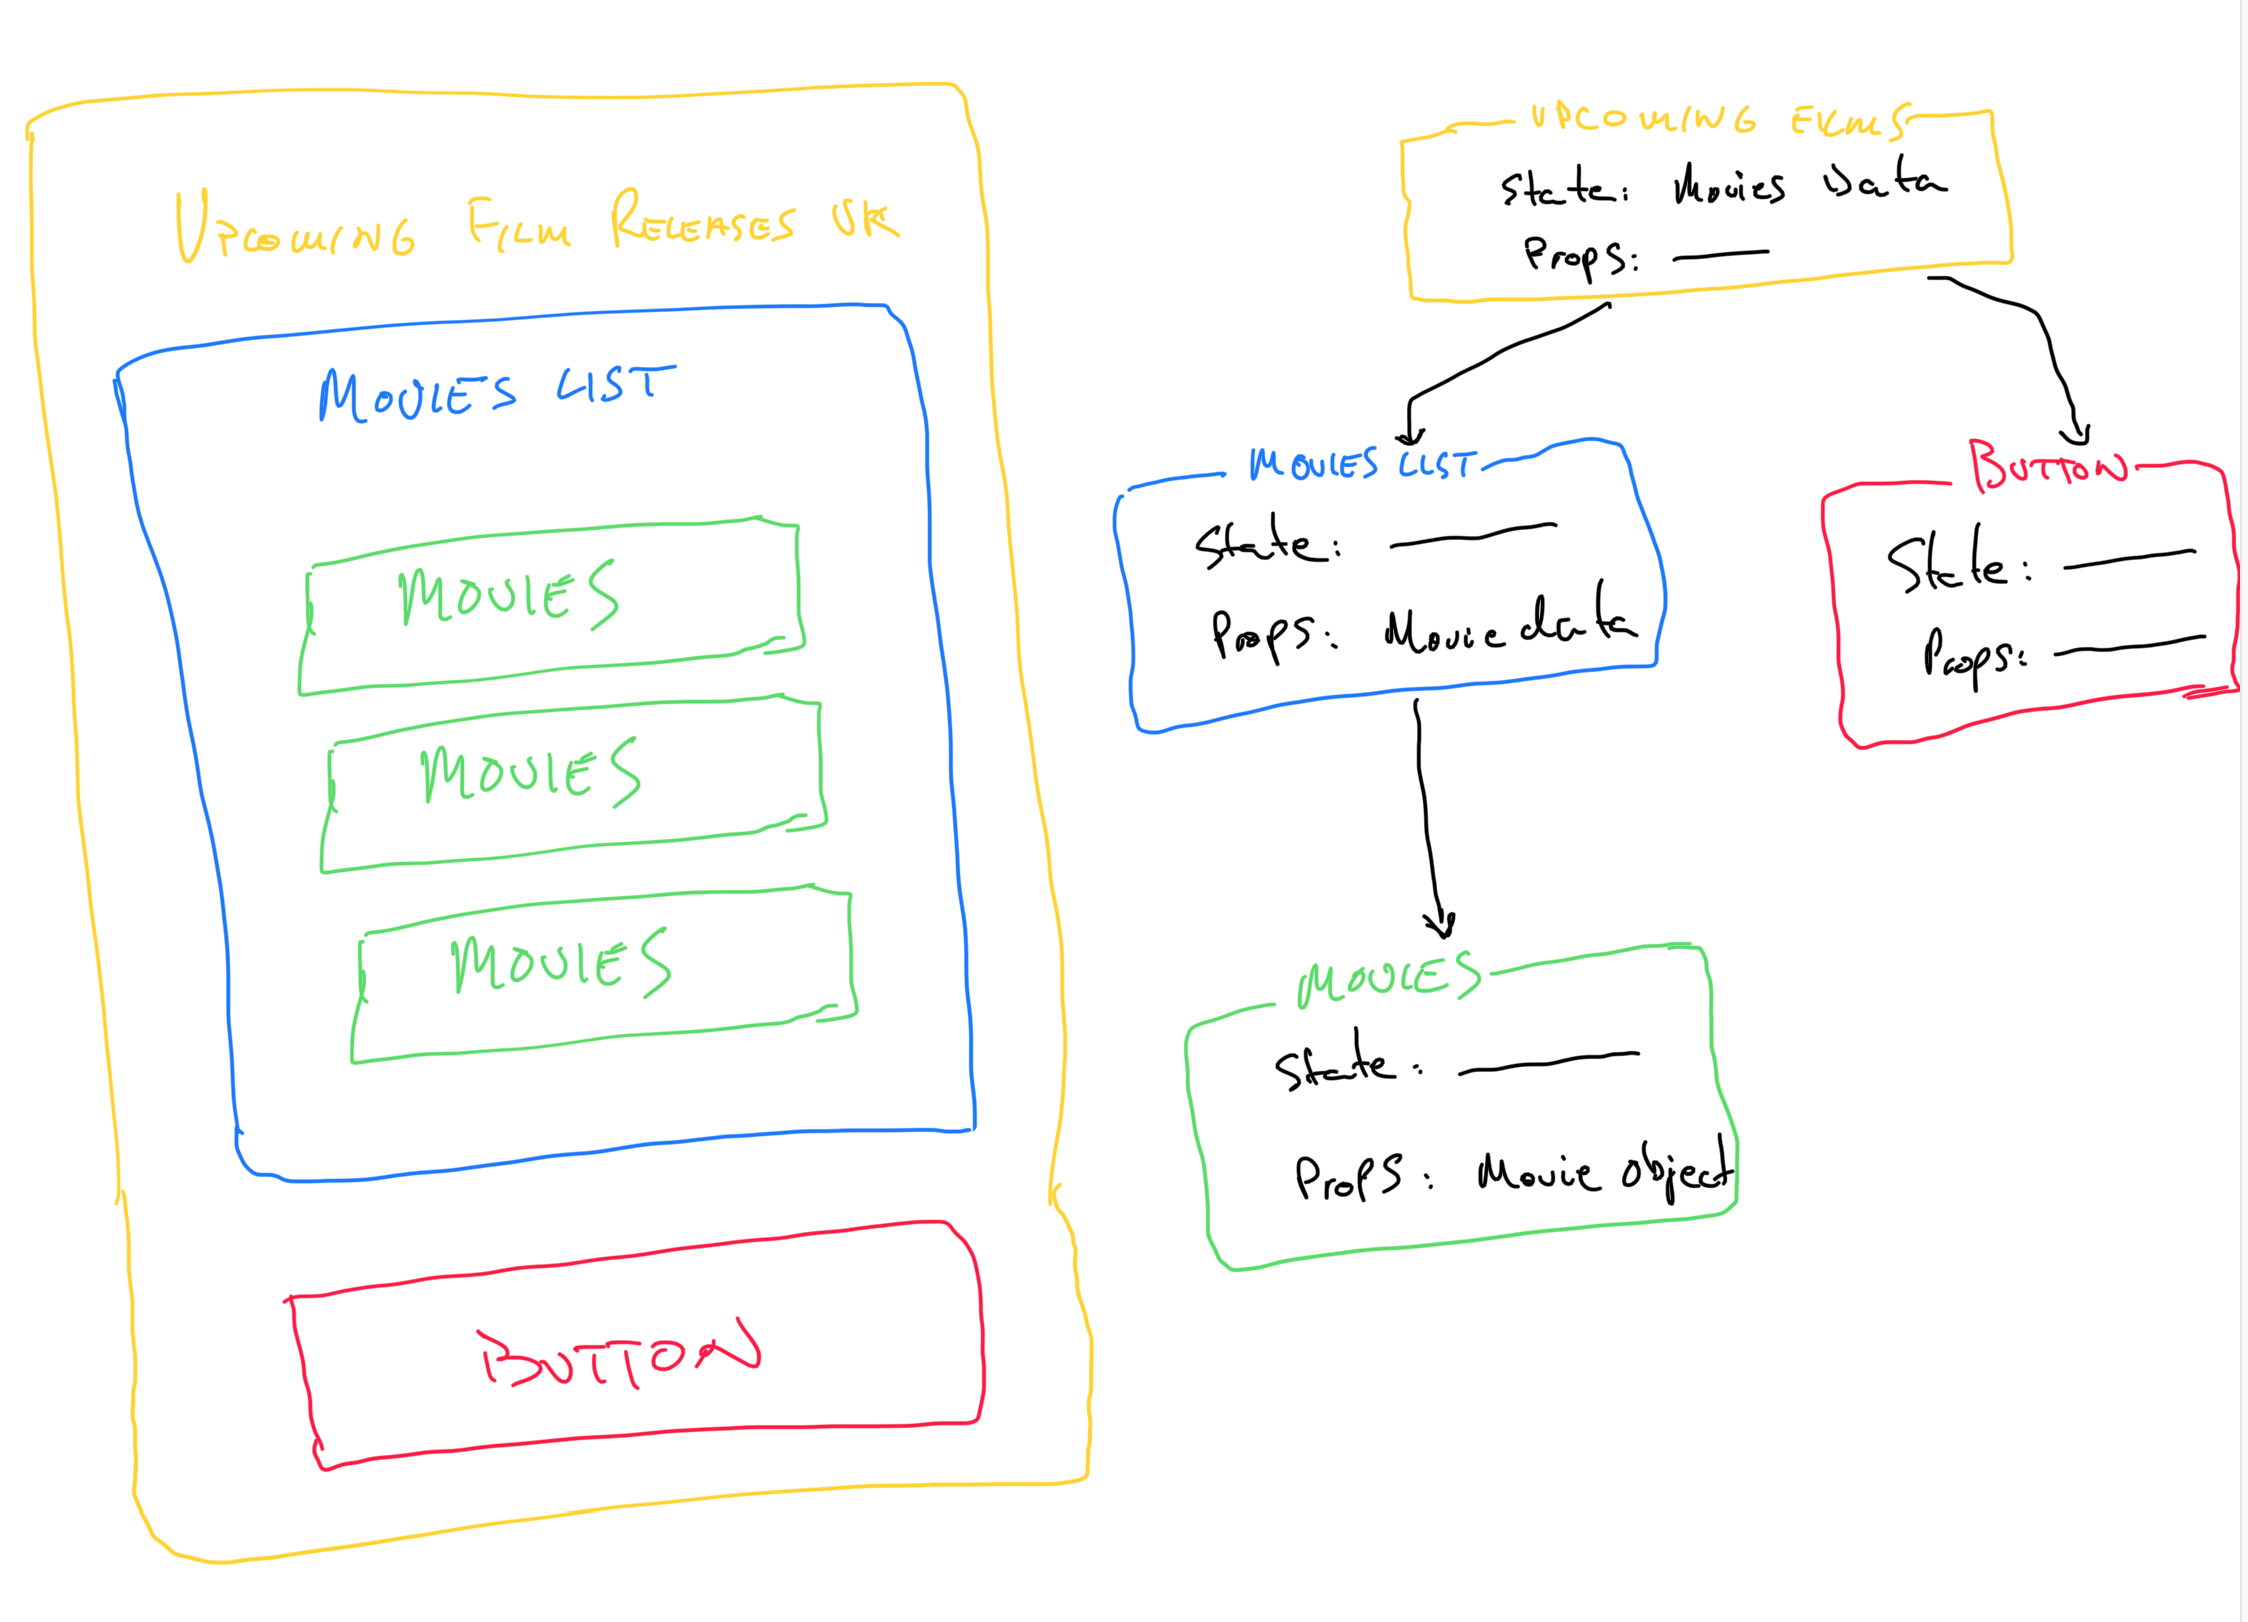 UPCOMING FILM RELEASES UK
MOVIES LIST
MOVIES
MOVIES
MOVIES
BUTTON
UPCOMING FILMS
State: Movies Data
Props: ——
MOVIES LIST
State: ——
Props: Movie data
BUTTON
State: ——
Props: ——
MOVIES
State: ——
Props: Movie object